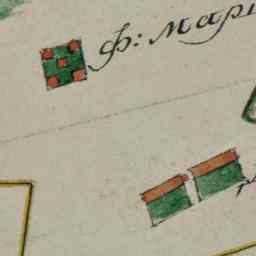 Ф: Мари